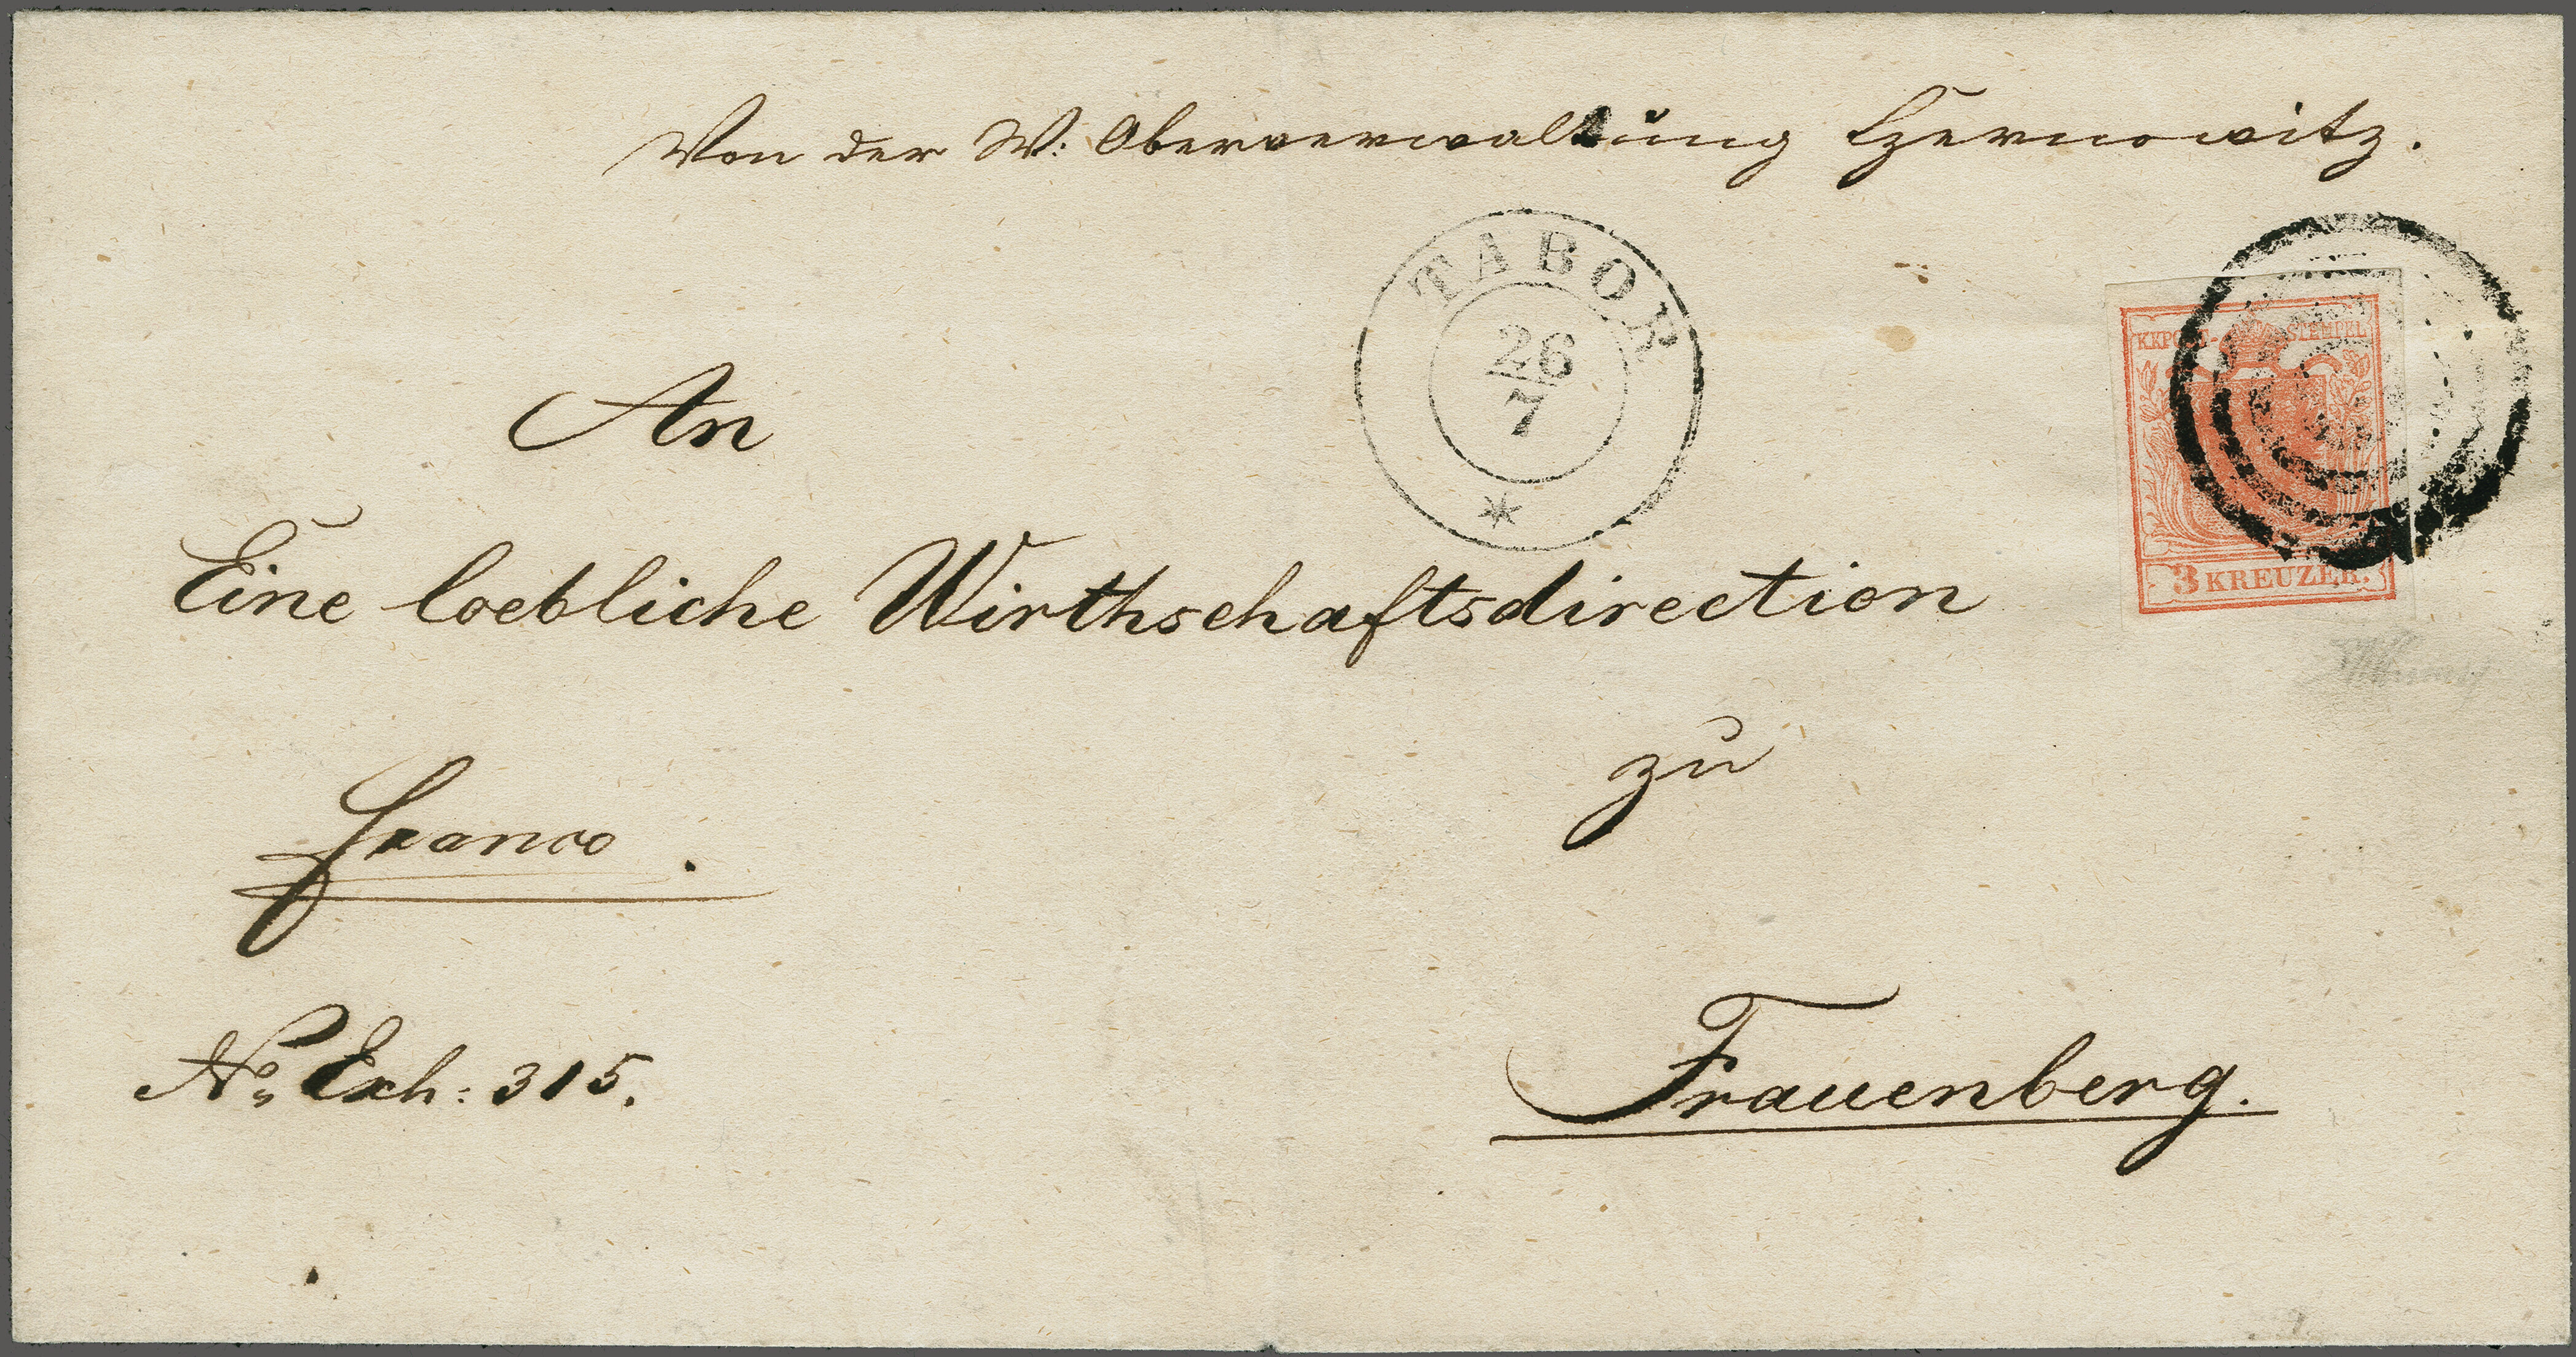 Von der W: Oberverwaltung Czernowitz.
TABOR
26
7
KKPOST-STEMPEL
3 KREUZER.
An
Eine loebliche Wirthschaftsdirection
zu
franco.
No Exh: 315.
Frauenberg.